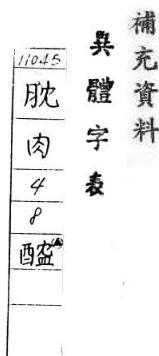 補充資料
異體字表
11045
肬
肉
4
8
醓